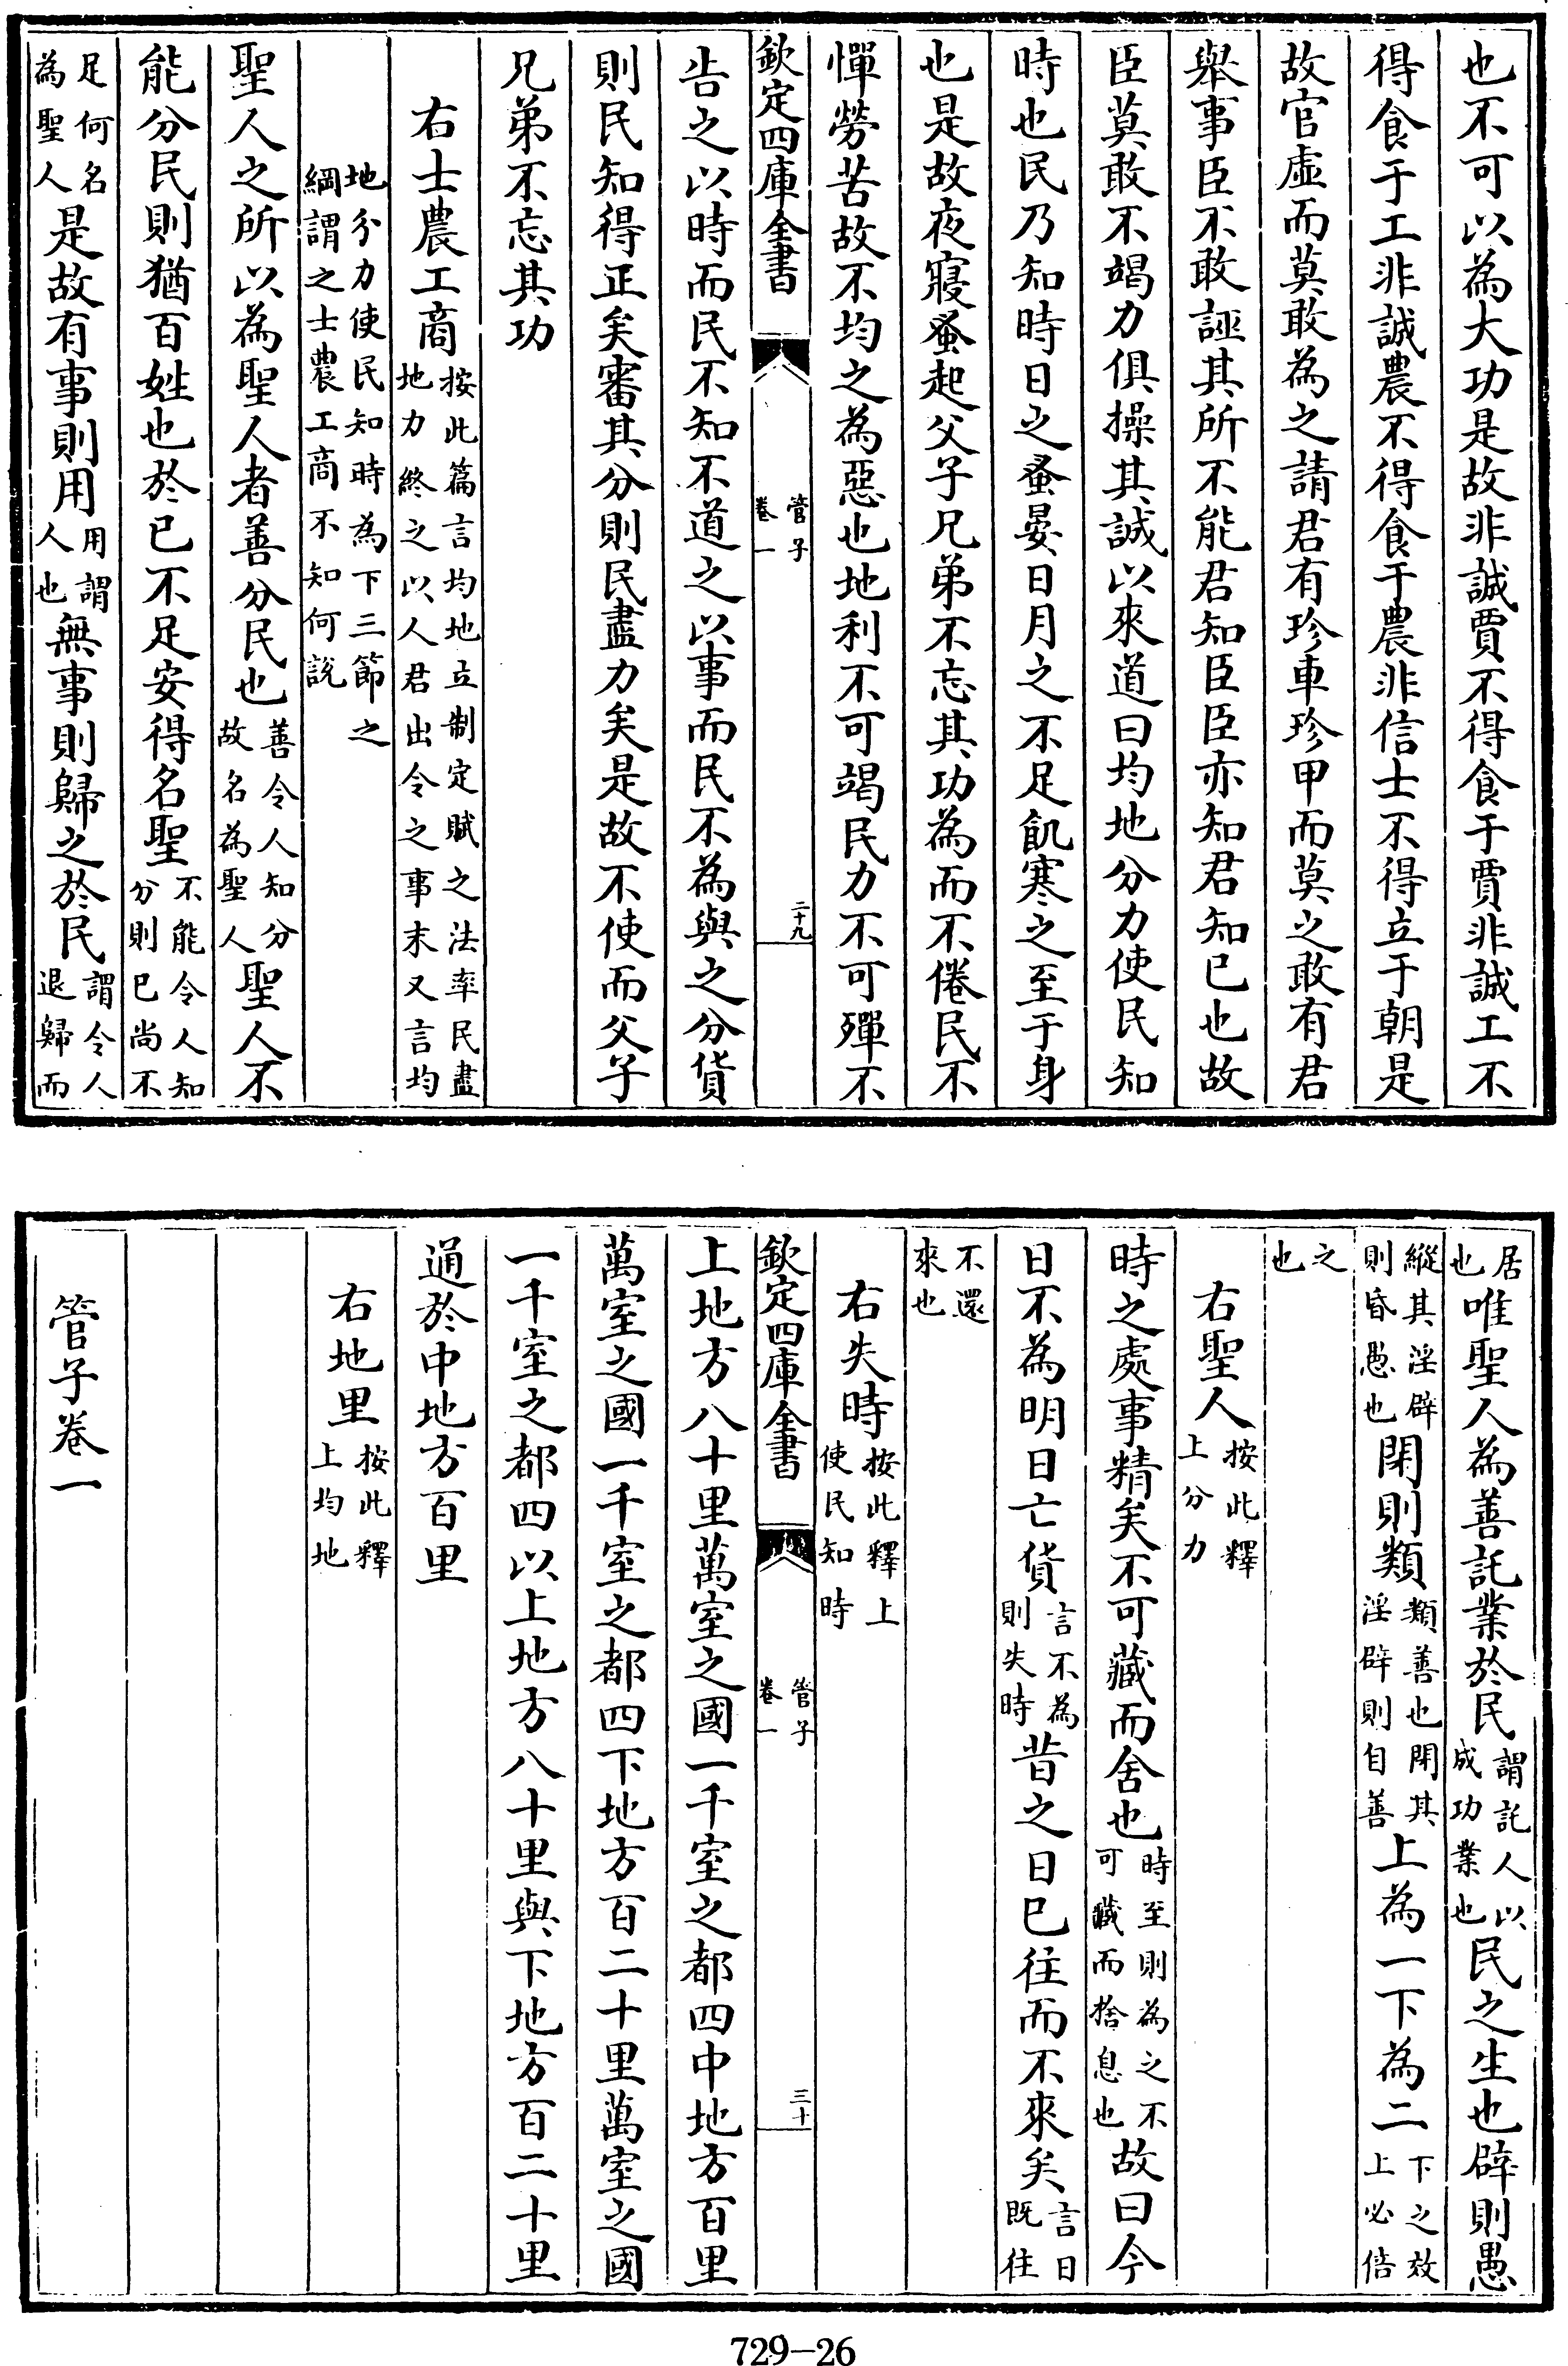 也不可以為大功是故非誠賈不得食于賈非誠工不
得食于工非誠農不得食于農非信士不得立于朝是
故官虛而莫敢為之請君有珍車珍甲而莫之敢有君
舉事臣不敢誣其所不能君知臣臣亦知君知已也故
臣莫敢不竭力俱操其誠以來道曰均地分力使民知
時也民乃知時日之蚤晏日月之不足飢寒之至于身
也是故夜寢蚤起父子兄弟不忘其功為而不倦民不
憚勞苦故不均之為惡也地利不可竭民力不可殫不
欽定四庫全書 管子卷一 二十九
告之以時而民不知不道之以事而民不為與之分貨
則民知得正矣審其分則民盡力矣是故不使而父子
兄弟不忘其功
右士農工商按此篇言均地立制定賦之法率民盡地力終之以人君出令之事末又言均
地分力使民知時為下三節之綱謂之士農工商不知何說
聖人之所以為聖人者善分民也善令人知分故名為聖人聖人不
能分民則猶百姓也於已不足安得名聖不能令人知分則已尚不
足何名為聖人是故有事則用用謂人也無事則歸之於民謂令人退歸而
居也唯聖人為善託業於民謂託人以成功業也民之生也辟則愚
縱其淫辟則昏愚也閉則類類善也閉其淫辟則自善上為一下為二下之效上必倍
之也
右聖人按此釋上分力
時之處事精矣不可藏而舍也時至則為之不可藏而捨息也故曰今
日不為明日亡貨言不為則失時昔之日已往而不來矣言日既往
不還來也
右失時按此釋上使民知時
欽定四庫全書 管子卷一 三十
上地方八十里萬室之國一千室之都四中地方百里
萬室之國一千室之都四下地方百二十里萬室之國
一千室之都四以上地方八十里與下地方百二十里
通於中地方百里
右地里按此釋上均地
管子卷一
729-26